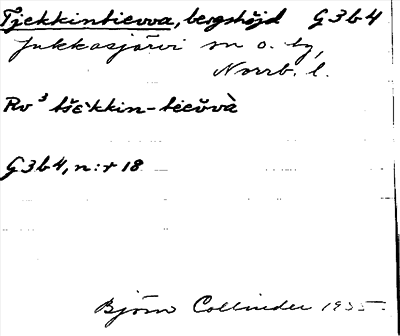 Tjekkintievva, bergshöjd G3b4
Jukkasjärvi sn o. tg,
Norrb. l.
Rv³ tšɛ̀kkin-tieŭvà
G3b4, n:r 18
Björn Collinder 1935.